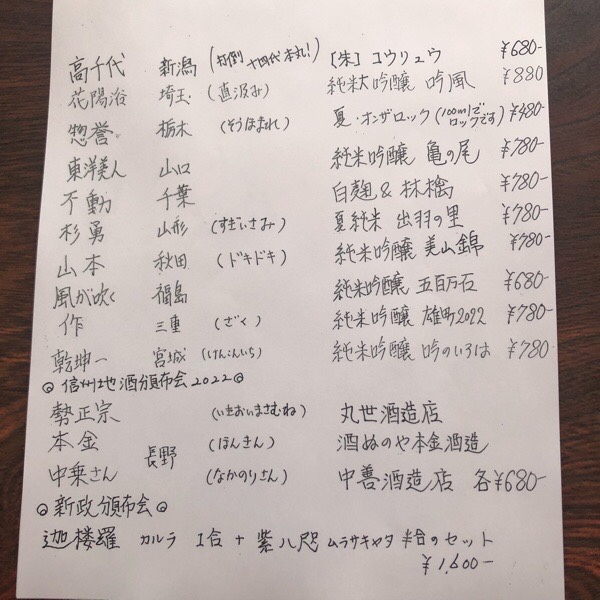 高千代 新潟 (打倒 十四代 本丸!) [朱] コウリュウ ¥680-
花陽浴 埼玉 (直汲み) 純米大吟醸 吟風 ¥880
惣誉 栃木 (そうほまれ) 夏・オンザロック (100mlでロックです) ¥480-
東洋美人 山口 純米吟醸 亀の尾 ¥780-
不動 千葉 白麹&林檎 ¥780-
杉勇 山形 (すぎいさみ) 夏純米 出羽の里 ¥780-
山本 秋田 (ドキドキ) 純米吟醸 美山錦 ¥780-
風が吹く 福島 純米吟醸 五百万石 ¥680-
作 三重 (ざく) 純米吟醸 雄町2022 ¥780-
乾坤一 宮城 (けんこんいち) 純米吟醸 吟のいろは ¥780
◎信州地酒頒布会2022◎
勢正宗 (いきおいまさむね) 丸世酒造店
本金 長野 (ほんきん) 酒ぬのや本金酒造
中乗さん (なかのりさん) 中善酒造店 各¥680-
◎新政頒布会◎
迦楼羅 カルラ 1合 + 紫八咫 ムラサキヤタ 半合のセット
¥1,600-